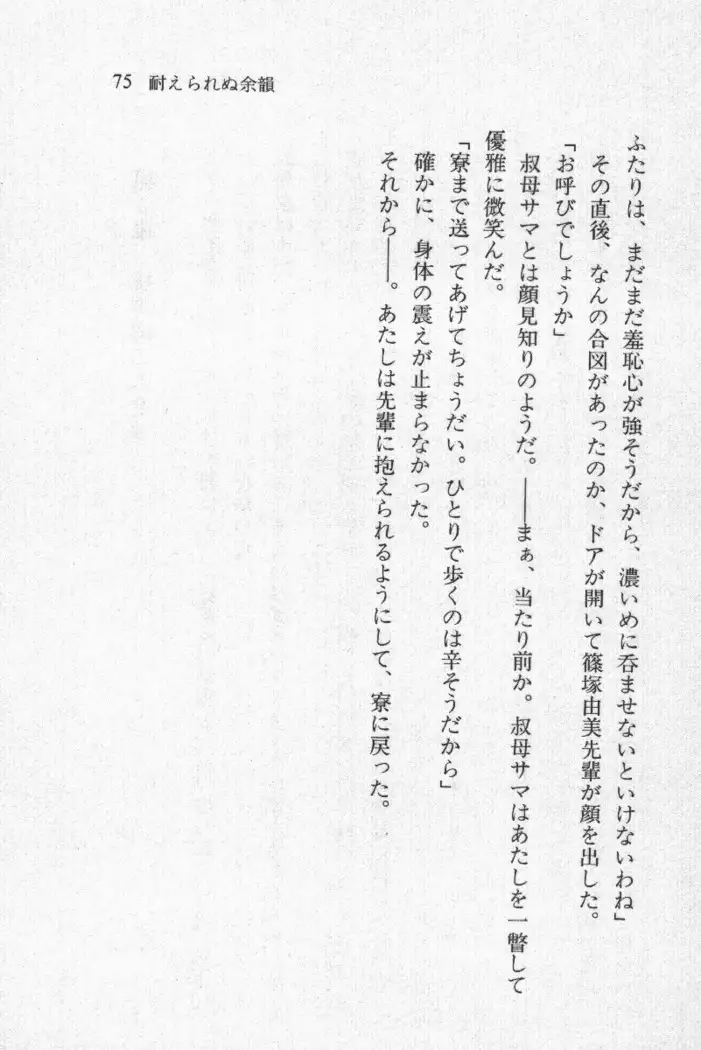 75 耐えられぬ余韻
ふたりは、まだまだ羞恥心が強そうだから、濃いめに呑ませないといけないわね」
その直後、なんの合図があったのか、ドアが開いて篠塚由美先輩が顔を出した。
「お呼びでしょうか」
叔母サマとは顔見知りのようだ。――まぁ、当たり前か。叔母サマはあたしを一瞥して
優雅に微笑んだ。
「寮まで送ってあげてちょうだい。ひとりで歩くのは辛そうだから」
確かに、身体の震えが止まらなかった。
それから――。あたしは先輩に抱えられるようにして、寮に戻った。